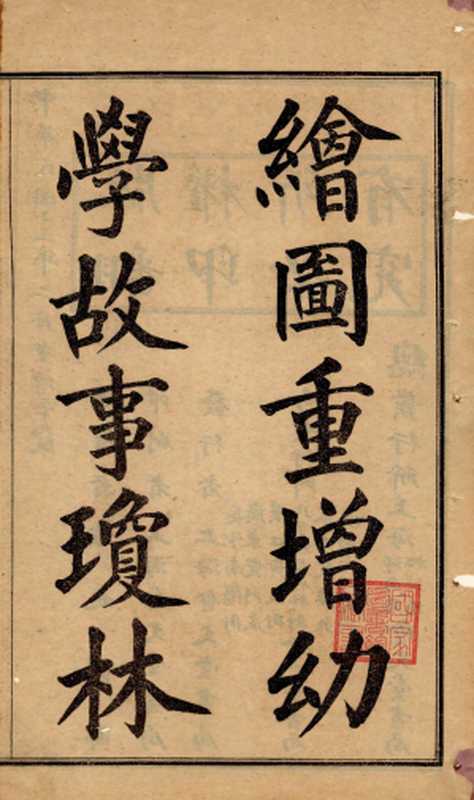 繪圖重增幼
學故事瓊林